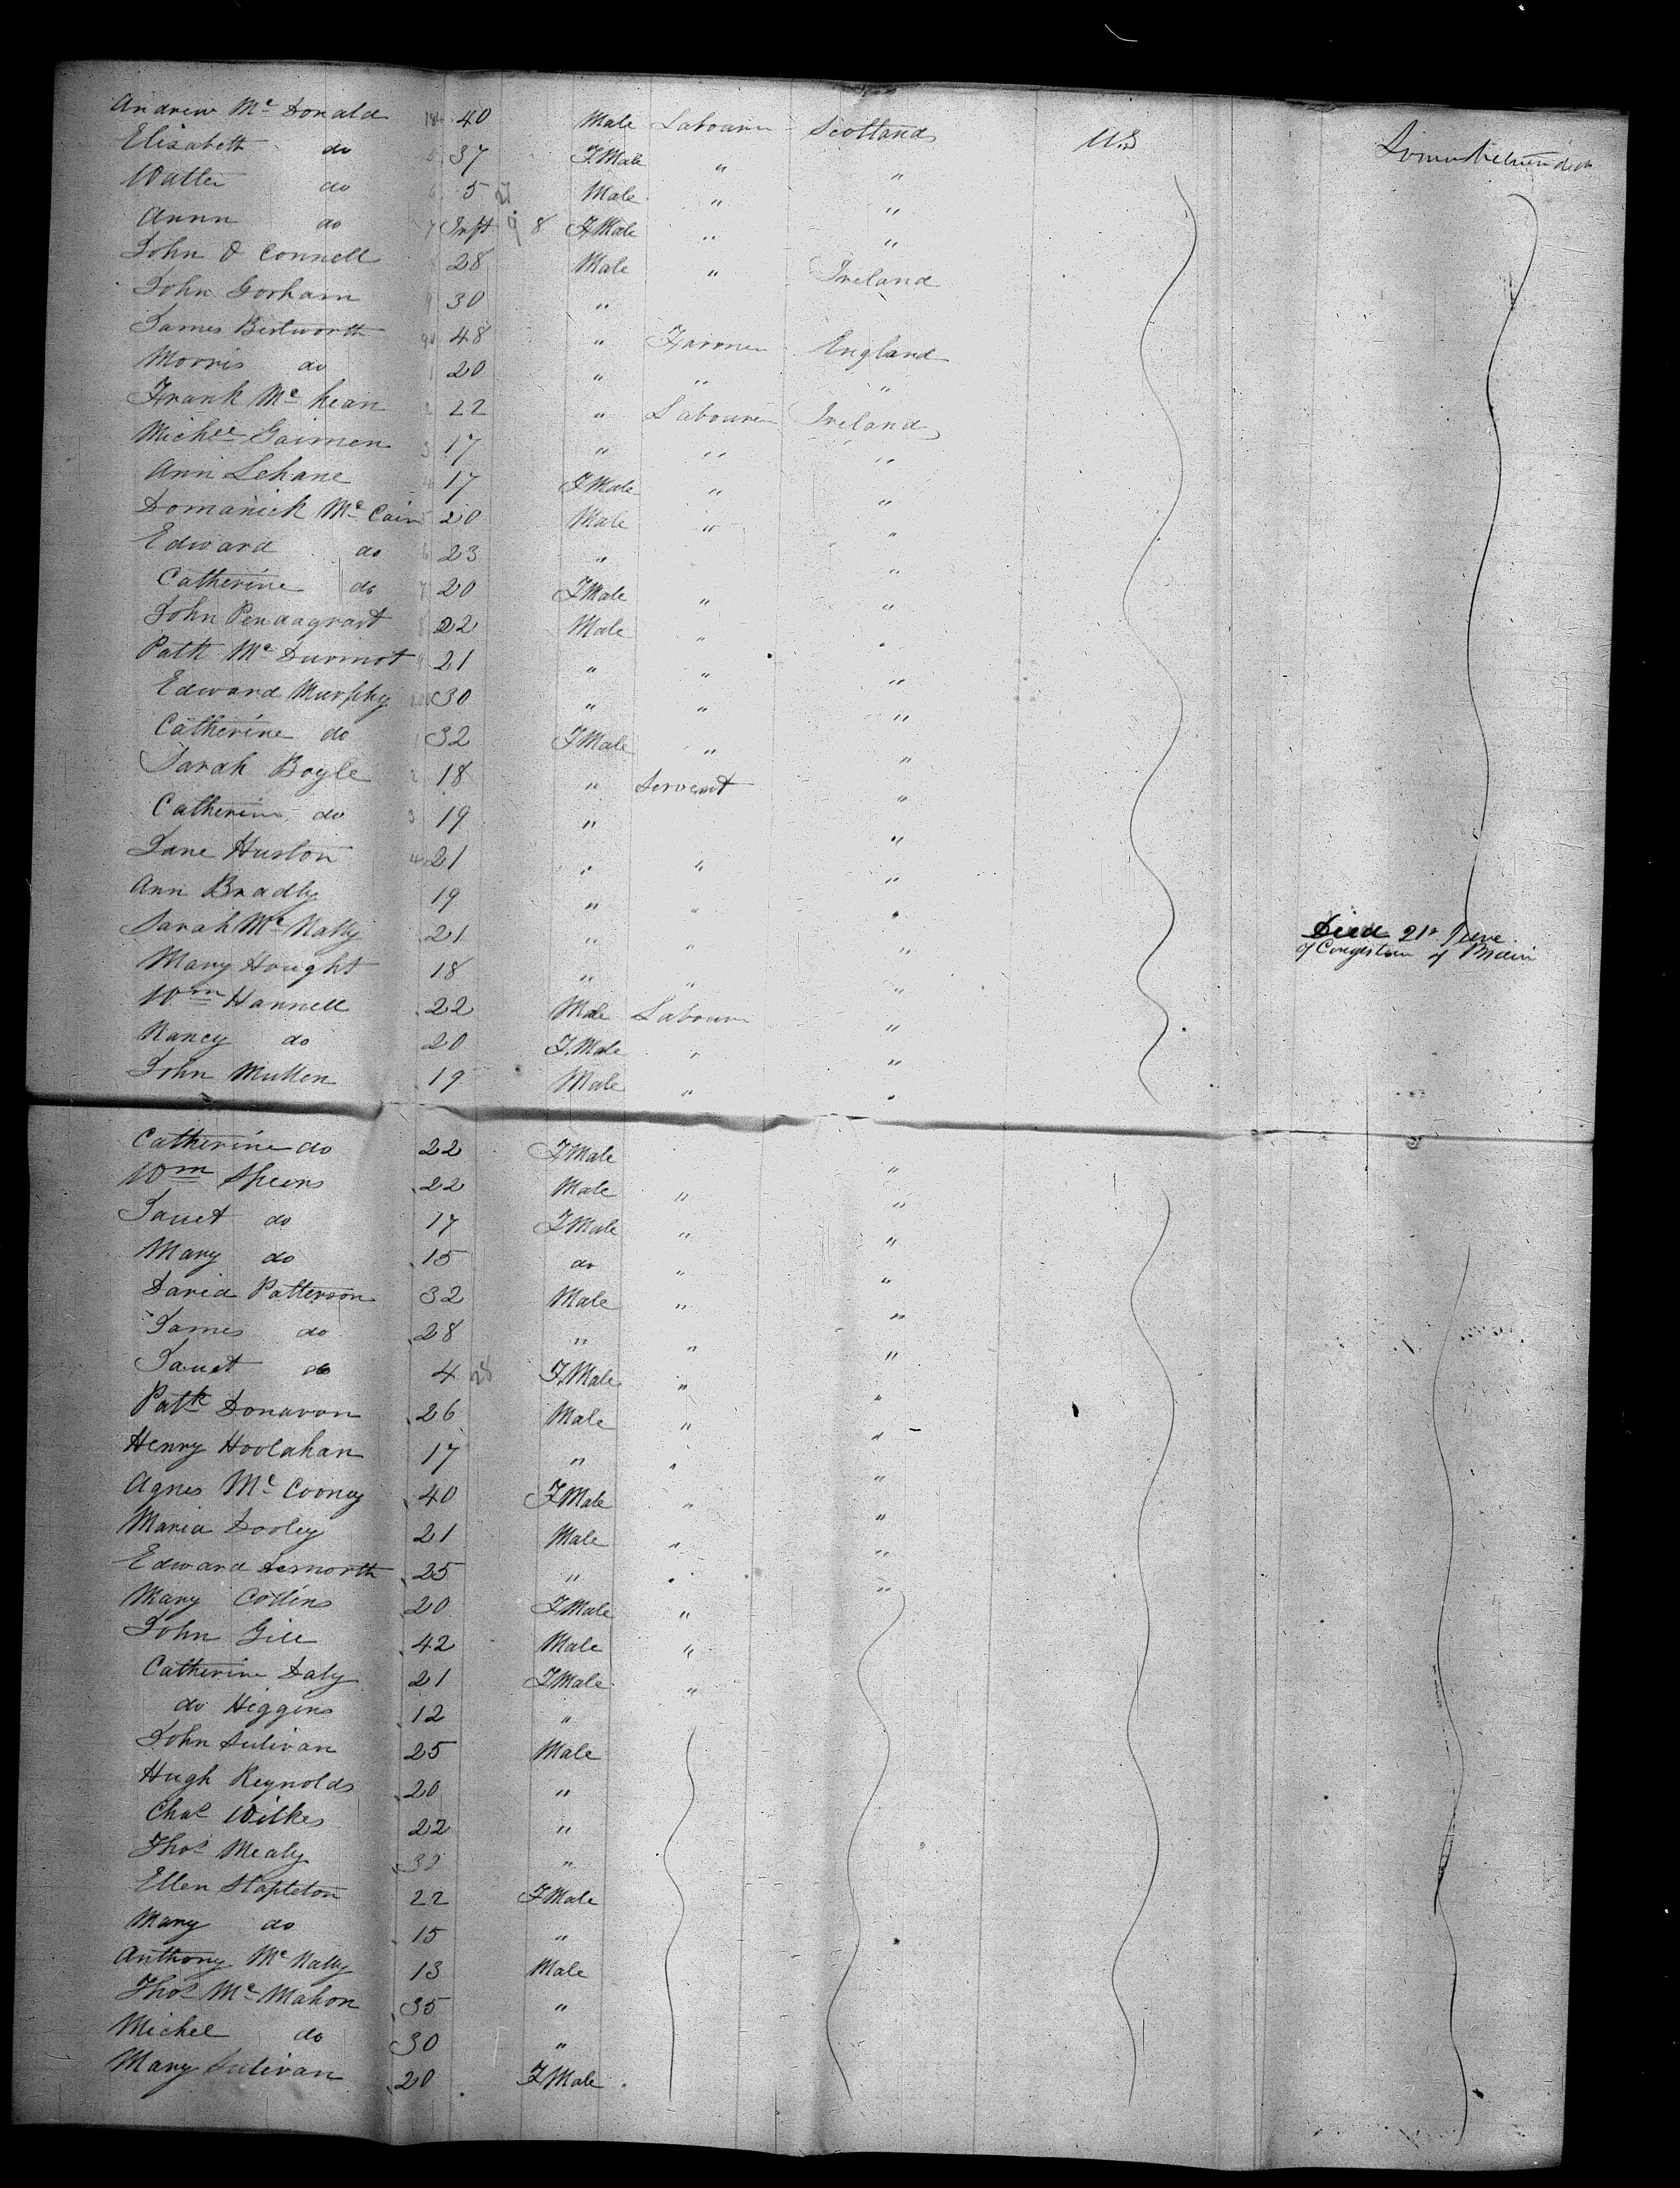 Andrew Mc Donald 184 40 Male Labourer Scotland U.S
Elisabeth do 5 37 F.Male " "
Walter do 6 5 Male " "
Annn do 7 Inft 8 F.Male " "
John O Connell 28 Male " Ireland
John Gorham 9 30 "
James Bestworth 90 48 " Farmer England
Morris do 1 20 " " "
Frank Mc Kean 2 22 " Labourer Ireland
Michel Gaimen 3 17 " " "
Ann Lehane 17 F.Male " "
Domanick Mc Cain 5 20 Male " "
Edward do 6 23 " "
Catherine do 7 20 F.Male " "
John Pendagrast 8 22 Male " "
Patk Mc Durmot 9 21 " " "
Edward Murphy 200 30 " " "
Catherine do 1 32 F.Male " "
Sarah Boyle 2 18 " Servent "
Catherine do 3 19 " "
Jane Huston 4 21 " " "
Ann Bradly 19 " " "
Sarah Mc Nally 21 " " " Died 21st June
of Congestion of Brain
Mary Hought 18 " " "
Wm Hannell 22 Male Labourer "
Nancy do 20 F.Male " "
John Mullen 19 Male " "
Catherine do 22 F.Male "
Wm Speirs 22 Male " "
Janet do 17 F.Male " "
Mary do 15 do " "
David Patterson 32 Male " "
James do 28 " " "
Janet do 4 28 F.Male " "
Patk Donavon 26 Male " "
Henry Hoolahan 17 " " "
Agnes Mc Cooney 40 F.Male " "
Maria Dooley 21 Male " "
Edward 25 " " "
Mary Collins 20 F.Male "
John Gill 42 Male "
Catherine Daly 21 F.Male "
do Higgins 12 "
John Sulivan 25 Male
Hugh Reynolds 20 "
Chas Wilkes 22 "
Thos Mealy 32 "
Ellen Stapleton 22 F.Male
Mary do 15 "
Anthony Mc Nally 13 Male
Thos Mc Mahon 35 "
Michel do 30 "
Mary Sulivan 20 F.Male